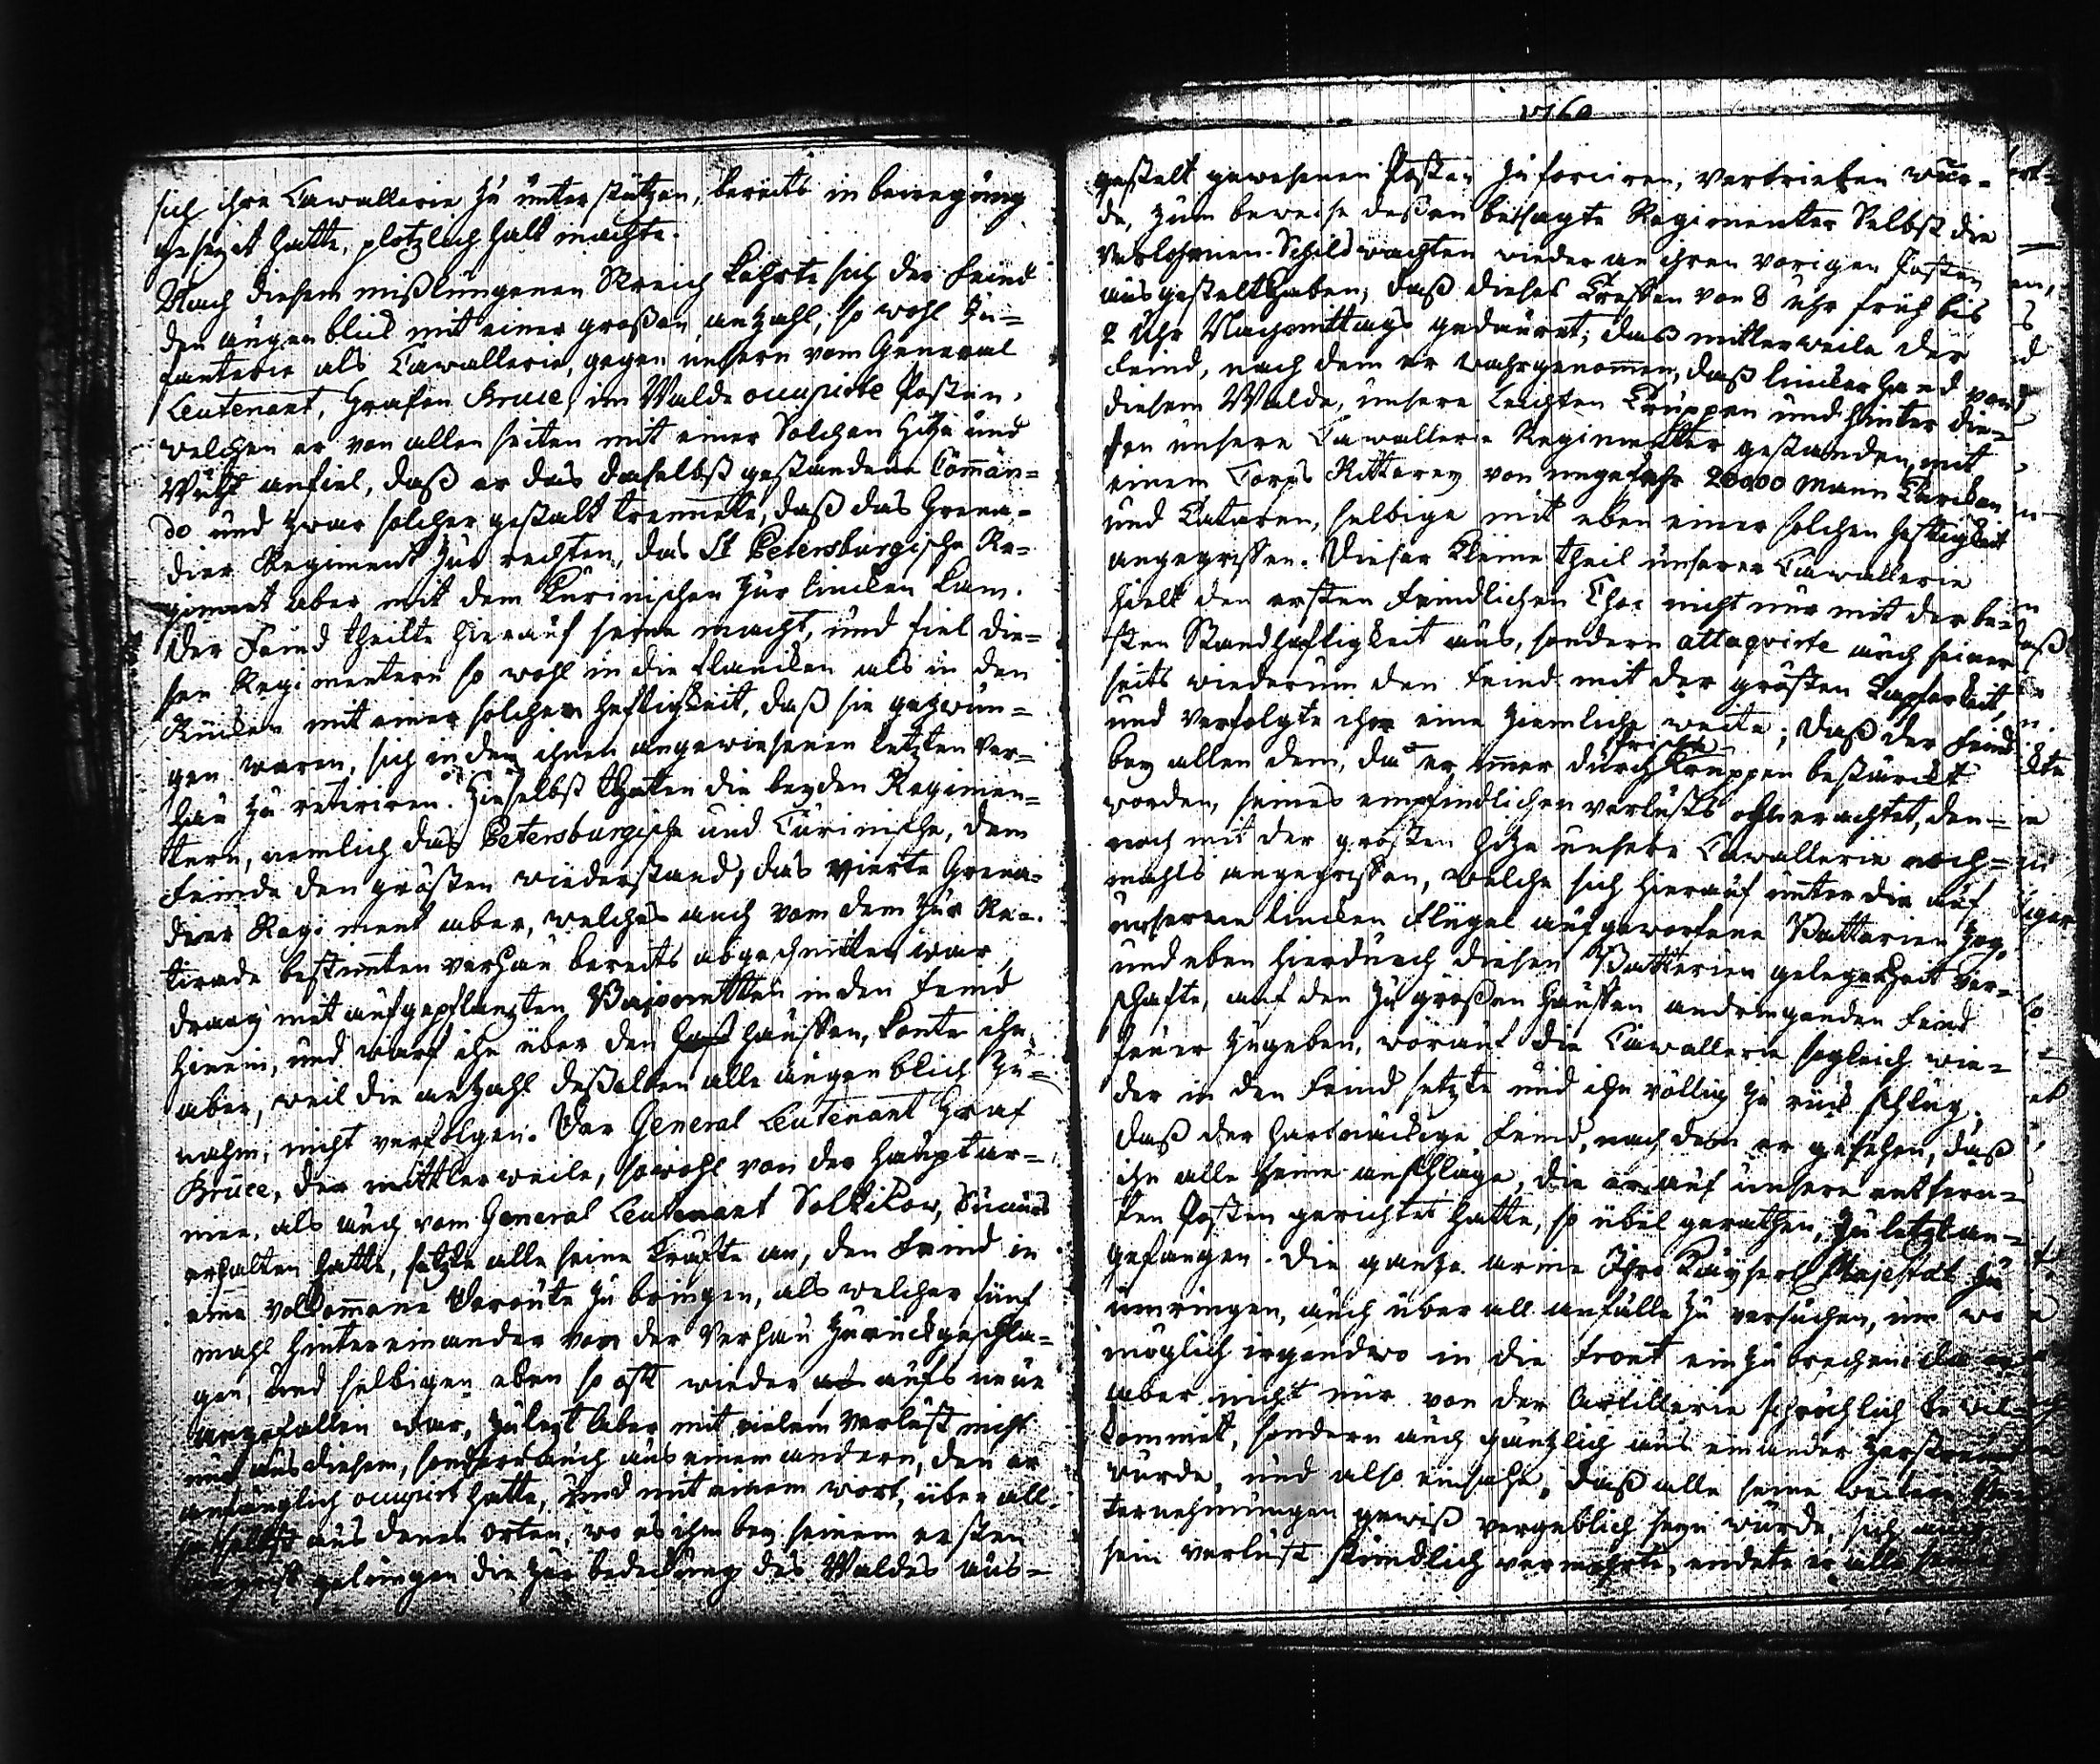 sich ihre Cawallerie zu unterstützen, bereits in bewegung
gesezet hatte, plotzlich halt machte.
Nach diesem mißlungenen Streich kehrte sich der Feind
den augenblick mit einer großen anzahl, so wohl In=
fanterie als Cawallerie, gegen unsern vom General
Leutenant, Grafen Bruce, im Walde occupirte Posten,
welchen er von allen seiten mit einer Solchen Hitze und
Wuth anfiel, daß er das daselbst gestandene Comman=
do und zwar solcher gestalt trennete, daß das Grena=
dier Regiment zur rechten, das St Petersburgische Re=
giment aber mit dem Kurinischen zur lincken kam.
Der Feind theilte hierauf seine macht, und fiel die=
sen Regimentern so wohl in die Flancken als in den
Rücken mit einer solchen Heftigkeit, daß sie gezwun=
gen waren, sich in den ihnen angewiesenen letzten Ver=
hau zu retiriren. Hieselbst thaten die beyden Regimen=
tern, nemlich das Petersburgische und Curinische, dem
Feinde den größten wiederstand, das vierte Grena=
dier Regiment aber, welches auch vom dem zur Re=
tirade bestimten verhau bereits abgeschnitten war,
drang mit aufgepflanzten Bajonetten in den Feind
hinein, und warf ihn über den hauffen, konte ihn
aber, weil die anzahl deßelben alle augenblick zu=
nahm, nicht verfolgen. Der General Leutenant Graf
Bruce, der mittlerweile, sowohl von der Hauptar=
mee, als auch vom General Leutenant Soltikow, Sucurs
erhalten hatte, setzte alle seine Kräfte an, den Feind in
eine vollkommene Deroute zu bringen, als welcher fünf
mahl hintereinander von der Verhau zurückgeschla=
gen, und selbigen eben so oft wieder aufs neue
angefallen war, zulezt aber mit vielem Verlust nicht
nur aus diesem, sondern auch aus einem andern, den er
anfänglich occupirt hatte, und mit einem wort, über all
selbst aus denen orten, wo es ihm bey seinem ersten
angriff gelungen die zur bedeckung des Waldes aus=
1760
gestelt gewesenen Posten zu forciren, vertrieben wur=
de, zum beweise deßen besagte Regimenter Selbst die
Verlohrnen Schildwachten wieder an ihren vorigen Posten
ausgestelt haben; daß dieses Treffen von 8 Uhr früh bis
2 Uhr Nachmittags gedauret; daß mittlerweile der
Feind, nach dem er wahrgenommen, daß lincker Hand von
diesem Walde, unsere Leichten Truppen und hinter die=
sen unsere Cawallerie Regimenter gestanden, mit
einem Corps Ritterey von ungefehr 20000 Mann Türcken
und Tataren, selbige mit eben einer solchen Heftigkeit
angegriffen. Dieser kleine theil unserer Cawallerie
hielt den ersten Feindlichen Choc nicht nur mit der be=
sten Standhaftigkeit aus, sondern attaqvirte auch seiner
seits wiederum den Feind mit der größten Tapferkeit,
und verfolgte ihn eine ziemliche weite; daß der Feind
bey allen dem, da er immer durch frische Truppen bestärckt
worden, seines empfindlichen verlusts ohnerachtet, den=
noch mit der größten Hitze unsere Cawallerie noch=
mahls angegriffen, welche sich hierauf unter die auf
unserem lincken Flügel aufgeworfene Batterien zog,
und eben hierdurch diesen Batterien gelegenheit ver=
schafte, auf den zu großen Hauffen andringenden Feind
Feuer zugeben, worauf die Cawallerie sogleich wie=
der in den Feind setzte und ihn völlig zu rück schlug;
daß der hartnäckige Feind, nach dem er gesehen, daß
ihn alle seine anschläge, die er auf unsere entfern=
ten Posten gerichtet hatte, so übel gerathen, zuletzt an=
gefangen. Die gantze armee Ihro Kayserl Majestät zu
umringen, auch über all anfälle zu versuchen, um wo
möglich irgendwo in die Front einzubrechen. da er
aber nicht nur von der Artillerie schröcklich bewil=
kommet, sondern auch gäntzlich aus einander zerstreuet
wurde, und also einsahe, daß alle seine weitere Un=
ternehmungen gewiß vergeblich seyn würde, sich auch
sein verlust stündlich vermehrte, endete er alle seine